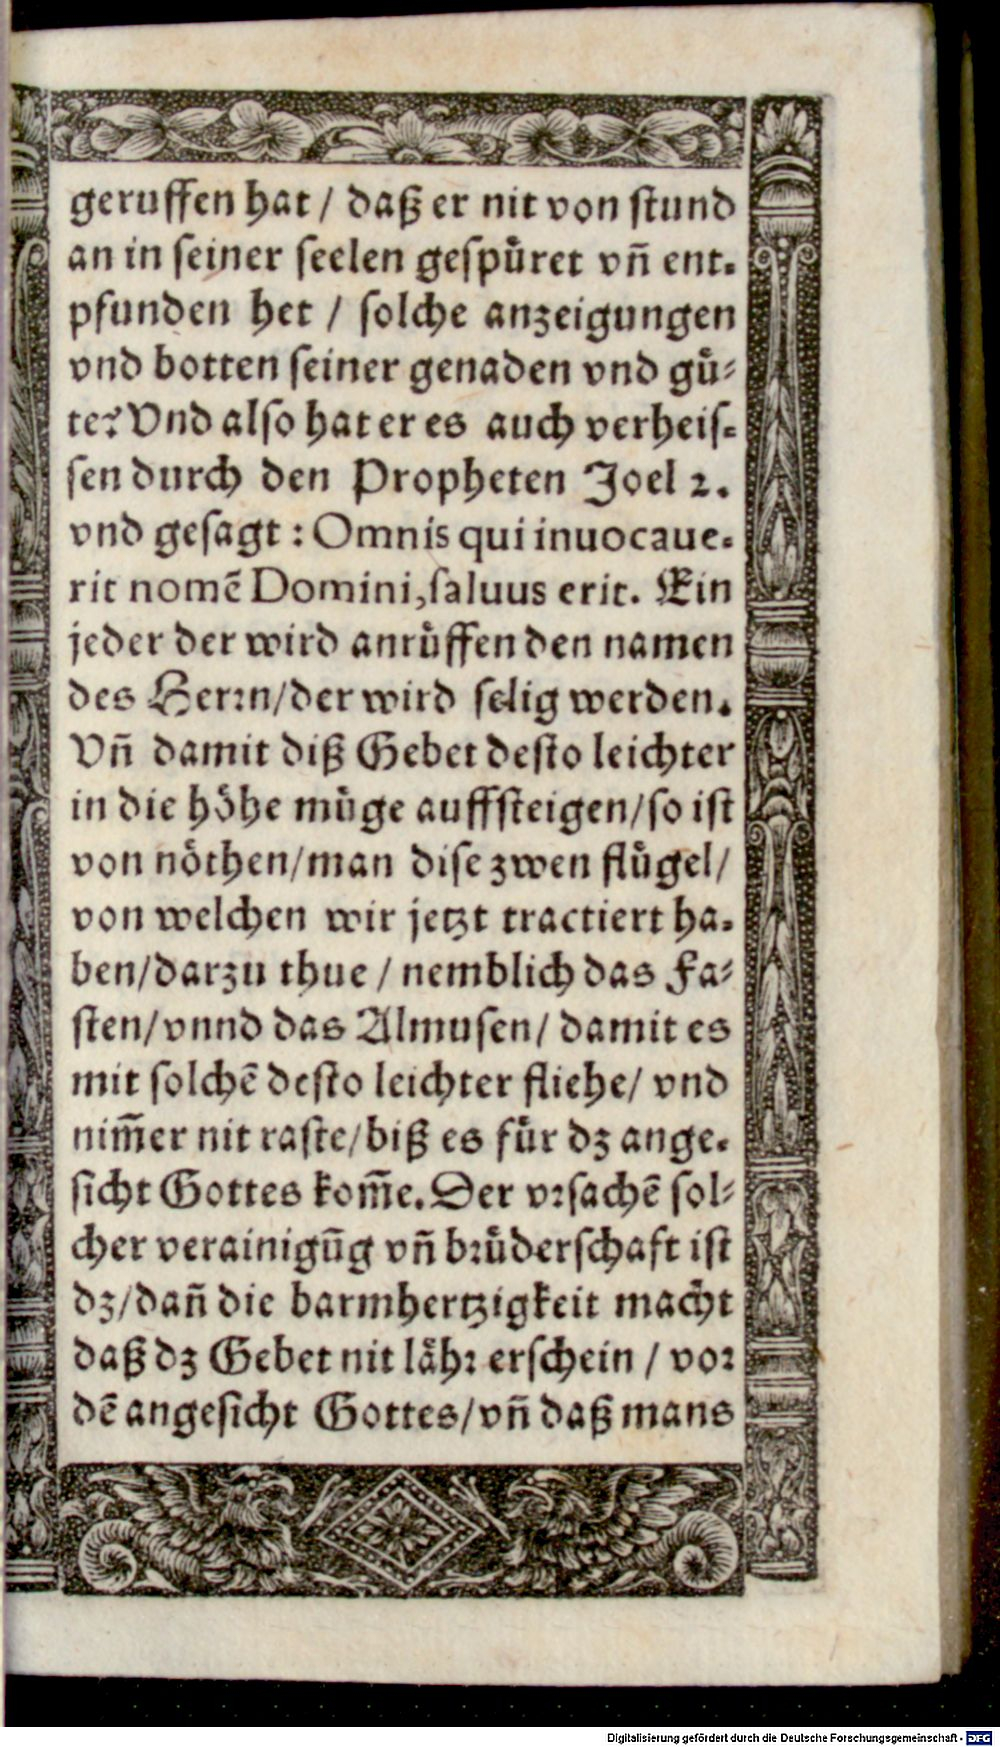 geruffen hat / daß er nit von stund
an in seiner seelen gespuͤret vñ ent-
pfunden het / solche anzeigungen
vnd botten seiner genaden vnd guͤ-
te? Vnd also hat er es auch verheis-
sen durch den Propheten Joel 2.
vnd gesagt : Omnis qui inuocaue-
rit nomẽ Domini, saluus erit. Ein
jeder der wird anruͤffen den namen
des Herrn/der wird selig werden.
Vñ damit diß Gebet desto leichter
in die hoͤhe muͤge auffsteigen/so ist
von noͤthen/man dise zwen fluͤgel/
von welchen wir jetzt tractiert ha-
ben/darzu thue / nemblich das Fa-
sten/vnnd das Almusen/ damit es
mit solchẽ desto leichter fliehe/ vnd
nim̃er nit raste/biß es fuͤr dz ange-
sicht Gottes kom̃e. Der vrsachẽ sol-
cher verainigũg vñ bruͤderschaft ist
dz/dañ die barmhertzigkeit macht
daß dz Gebet nit laͤhr erschein / vor
dẽ angesicht Gottes/vñ daß mans
Digitalisierung gefördert durch die Deutsche Forschungsgemeinschaft - DFG